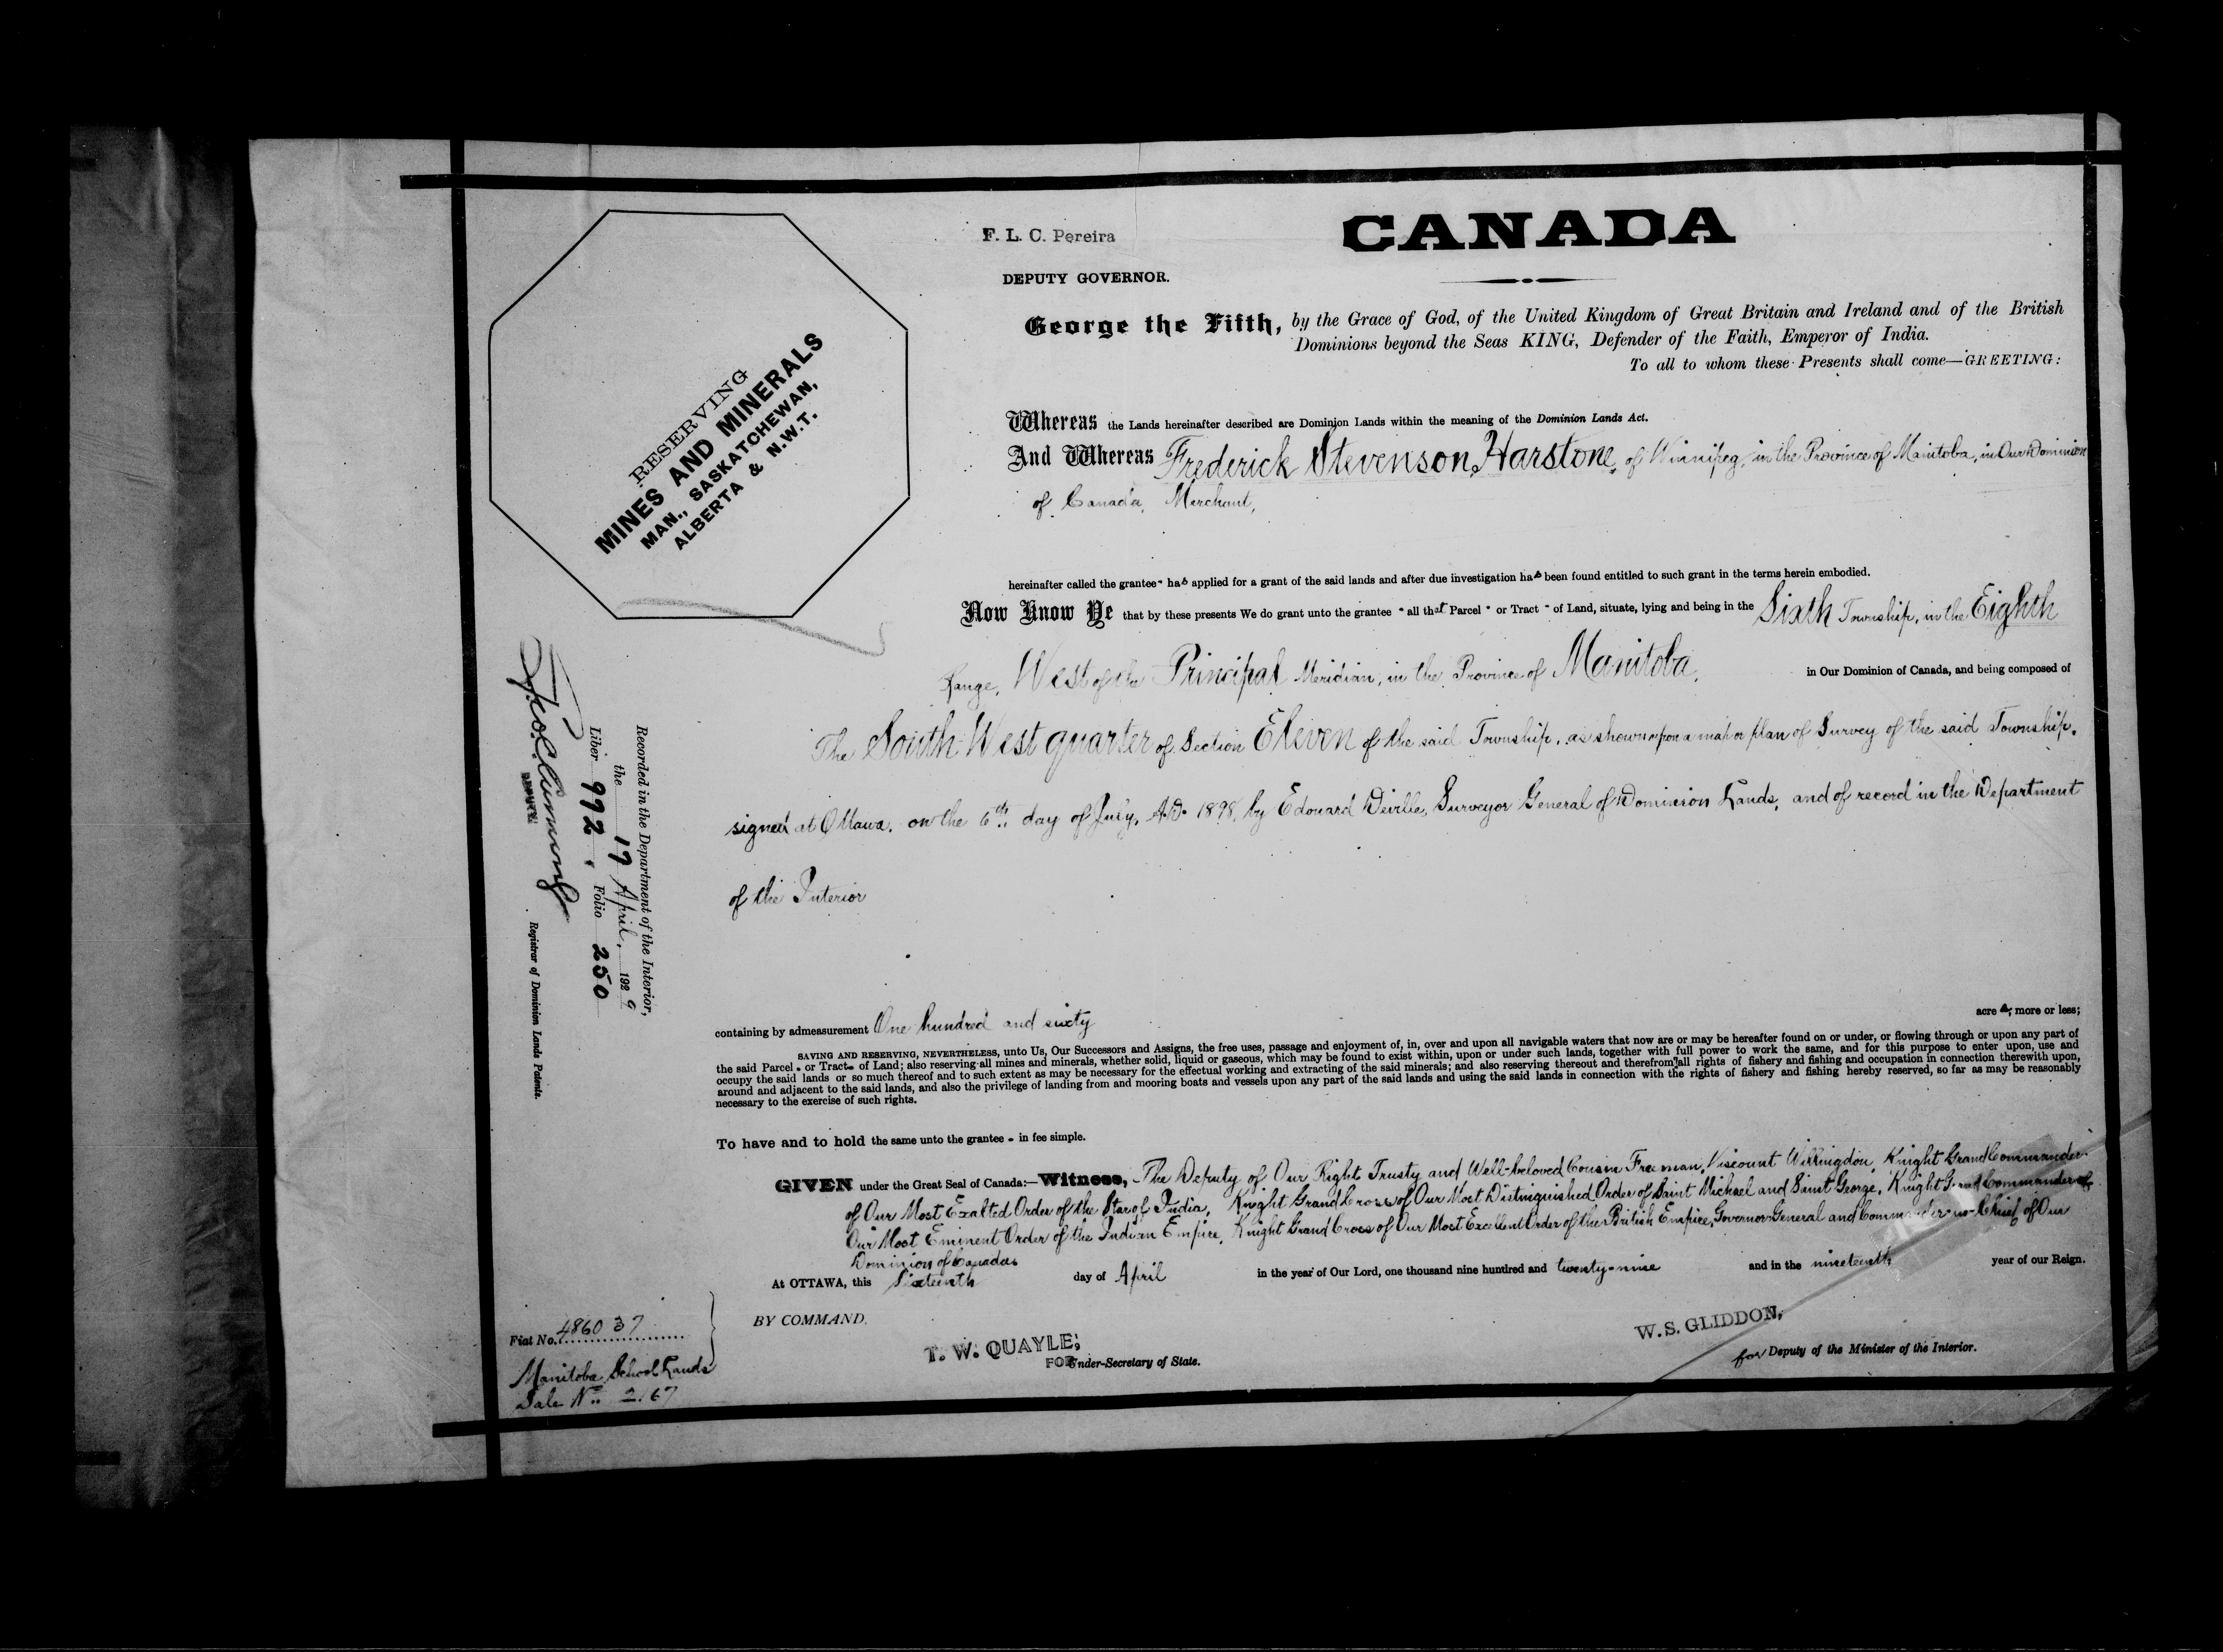 F. L. C. Pereira
DEPUTY GOVERNOR.
CANADA
George the Fifth, by the Grace of God, of the United Kingdom of Great Britain and Ireland and of the British
Dominions beyond the Seas KING, Defender of the Faith, Emperor of India.
To all to whom these Presents shall come—GREETING:
RESERVING
MINES AND MINERALS
MAN., SASKATCHEWAN,
ALBERTA & N.W.T.
Whereas the Lands hereinafter described are Dominion Lands within the meaning of the Dominion Lands Act.
And Whereas Frederick Stevenson Harstone, of Winnipeg, in the Province of Manitoba, in Our Dominion
of Canada, Merchant,
hereinafter called the grantee has applied for a grant of the said lands and after due investigation has been found entitled to such grant in the terms herein embodied.
Now Know Ye that by these presents We do grant unto the grantee all that Parcel or Tract of Land, situate, lying and being in the Sixth Township, in the Eighth
Range, West of the Principal Meridian, in the Province of Manitoba, in Our Dominion of Canada, and being composed of
The South West quarter of Section Eleven of the said Township, as shown upon a map or plan of Survey of the said Township,
signed at Ottawa, on the 6th day of July, A.D. 1898, by Edouard Deville, Surveyor General of Dominion Lands, and of record in the Department
of the Interior
containing by admeasurement One hundred and sixty acres, more or less;
SAVING AND RESERVING, NEVERTHELESS, unto Us, Our Successors and Assigns, the free uses, passage and enjoyment of, in, over and upon all navigable waters that now are or may be hereafter found on or under, or flowing through or upon any part of
the said Parcel or Tract of Land; also reserving all mines and minerals, whether solid, liquid or gaseous, which may be found to exist within, upon or under such lands, together with full power to work the same, and for this purpose to enter upon, use and
occupy the said lands or so much thereof and to such extent as may be necessary for the effectual working and extracting of the said minerals; and also reserving thereout and therefrom all rights of fishery and fishing and occupation in connection therewith upon,
around and adjacent to the said lands, and also the privilege of landing from and mooring boats and vessels upon any part of the said lands and using the said lands in connection with the rights of fishery and fishing hereby reserved, so far as may be reasonably
necessary to the exercise of such rights.
To have and to hold the same unto the grantee in fee simple.
GIVEN under the Great Seal of Canada:—Witness, The Deputy of Our Right Trusty and Well-beloved Cousin Freeman, Viscount Willingdon, Knight Grand Commander
of Our Most Exalted Order of the Star of India, Knight Grand Cross of Our Most Distinguished Order of Saint Michael and Saint George, Knight Grand Commander of
Our Most Eminent Order of the Indian Empire, Knight Grand Cross of Our Most Excellent Order of the British Empire, Governor General and Commander-in-Chief of Our
Dominion of Canada.
At OTTAWA, this Sixteenth day of April in the year of Our Lord, one thousand nine hundred and twenty-nine and in the nineteenth year of our Reign.
BY COMMAND,
T. W. QUAYLE,
FOR Under-Secretary of State.
W. S. GLIDDON,
for Deputy of the Minister of the Interior.
Recorded in the Department of the Interior,
the 17 April, 1929
Liber 992, Folio 250
DEPUTY
Registrar of Dominion Lands Patents.
Fiat No. 486037
Manitoba School Lands
Sale No. 2167